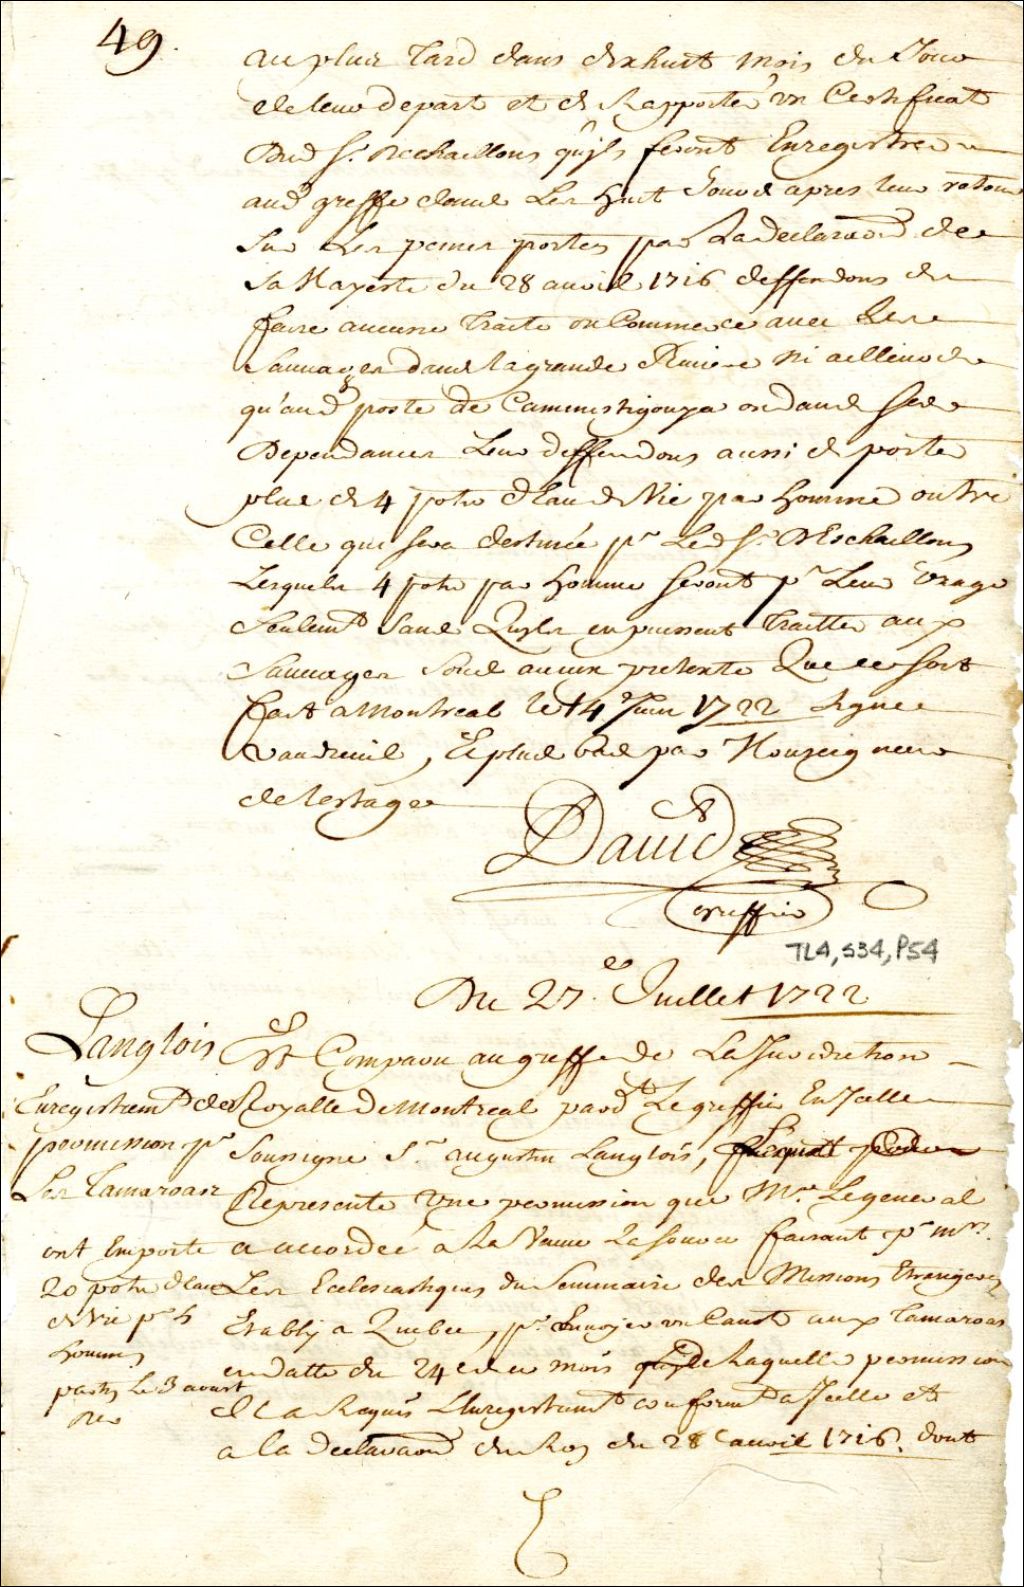 49.
au plus tard dans dixhuit mois du Jour
de leur depart et de Rapporter un Certificat
Dud Sr. Deschaillons quils feront Enregistrer
aud greffe dans Les huit Jours apres leur retour
Sur Les peines portées par La declaraon de
Sa Mayesté du 28 avril 1716 deffendons de
faire aucune traite ou Commerce avec Les
Sauvages dans la grande Riviere ni ailleurs
qu'aud poste de Caministigouya ou dans Ses
Dependances Leur deffendons aussi de porter
plus de 4 pots d'Eau de Vie par homme outre
Celle qui sera destinée pr Led Sr. DEschaillons
Lesquels 4 pots par homme seront pr Leur Usage
Seulemt Sans Quils en puissent traitter aux
Sauvages Sous aucun pretexte Que ce soit
fait a Montreal le 14 Juin 1722 Signé
Vaudreuil, Et plus bas par Monseigneur
de Lestage
David
Greffier
TL4, S34, P54
Du 27e. Juillet 1722
Langlois
Enregistremt de
permission pr
Les Tamaroas
ont Emporté
20 pots d'Eau
de Vie pr 5
hommes
partis Le 3 aoust
Est Comparu au greffe de La Jurisdiction
Royalle de Montreal pard Le greffier En Jcelle
Soussigné Sr. augustin Langlois,
Represente Une permission que Mr. Le general
a accordée a La Veuve Lasource faisant pr mrs.
Les Eclesiastiques du Seminaire des Missions Etrangeres
Etably a Quebec, pr. Envoyer un Canot aux Tamaroas
en datte du 24 de ce mois de Laquelle permission
il a Requis L'Enregistremt conformt a Jcelle et
a la Declaraon du Roy du 28 avril 1716. dont